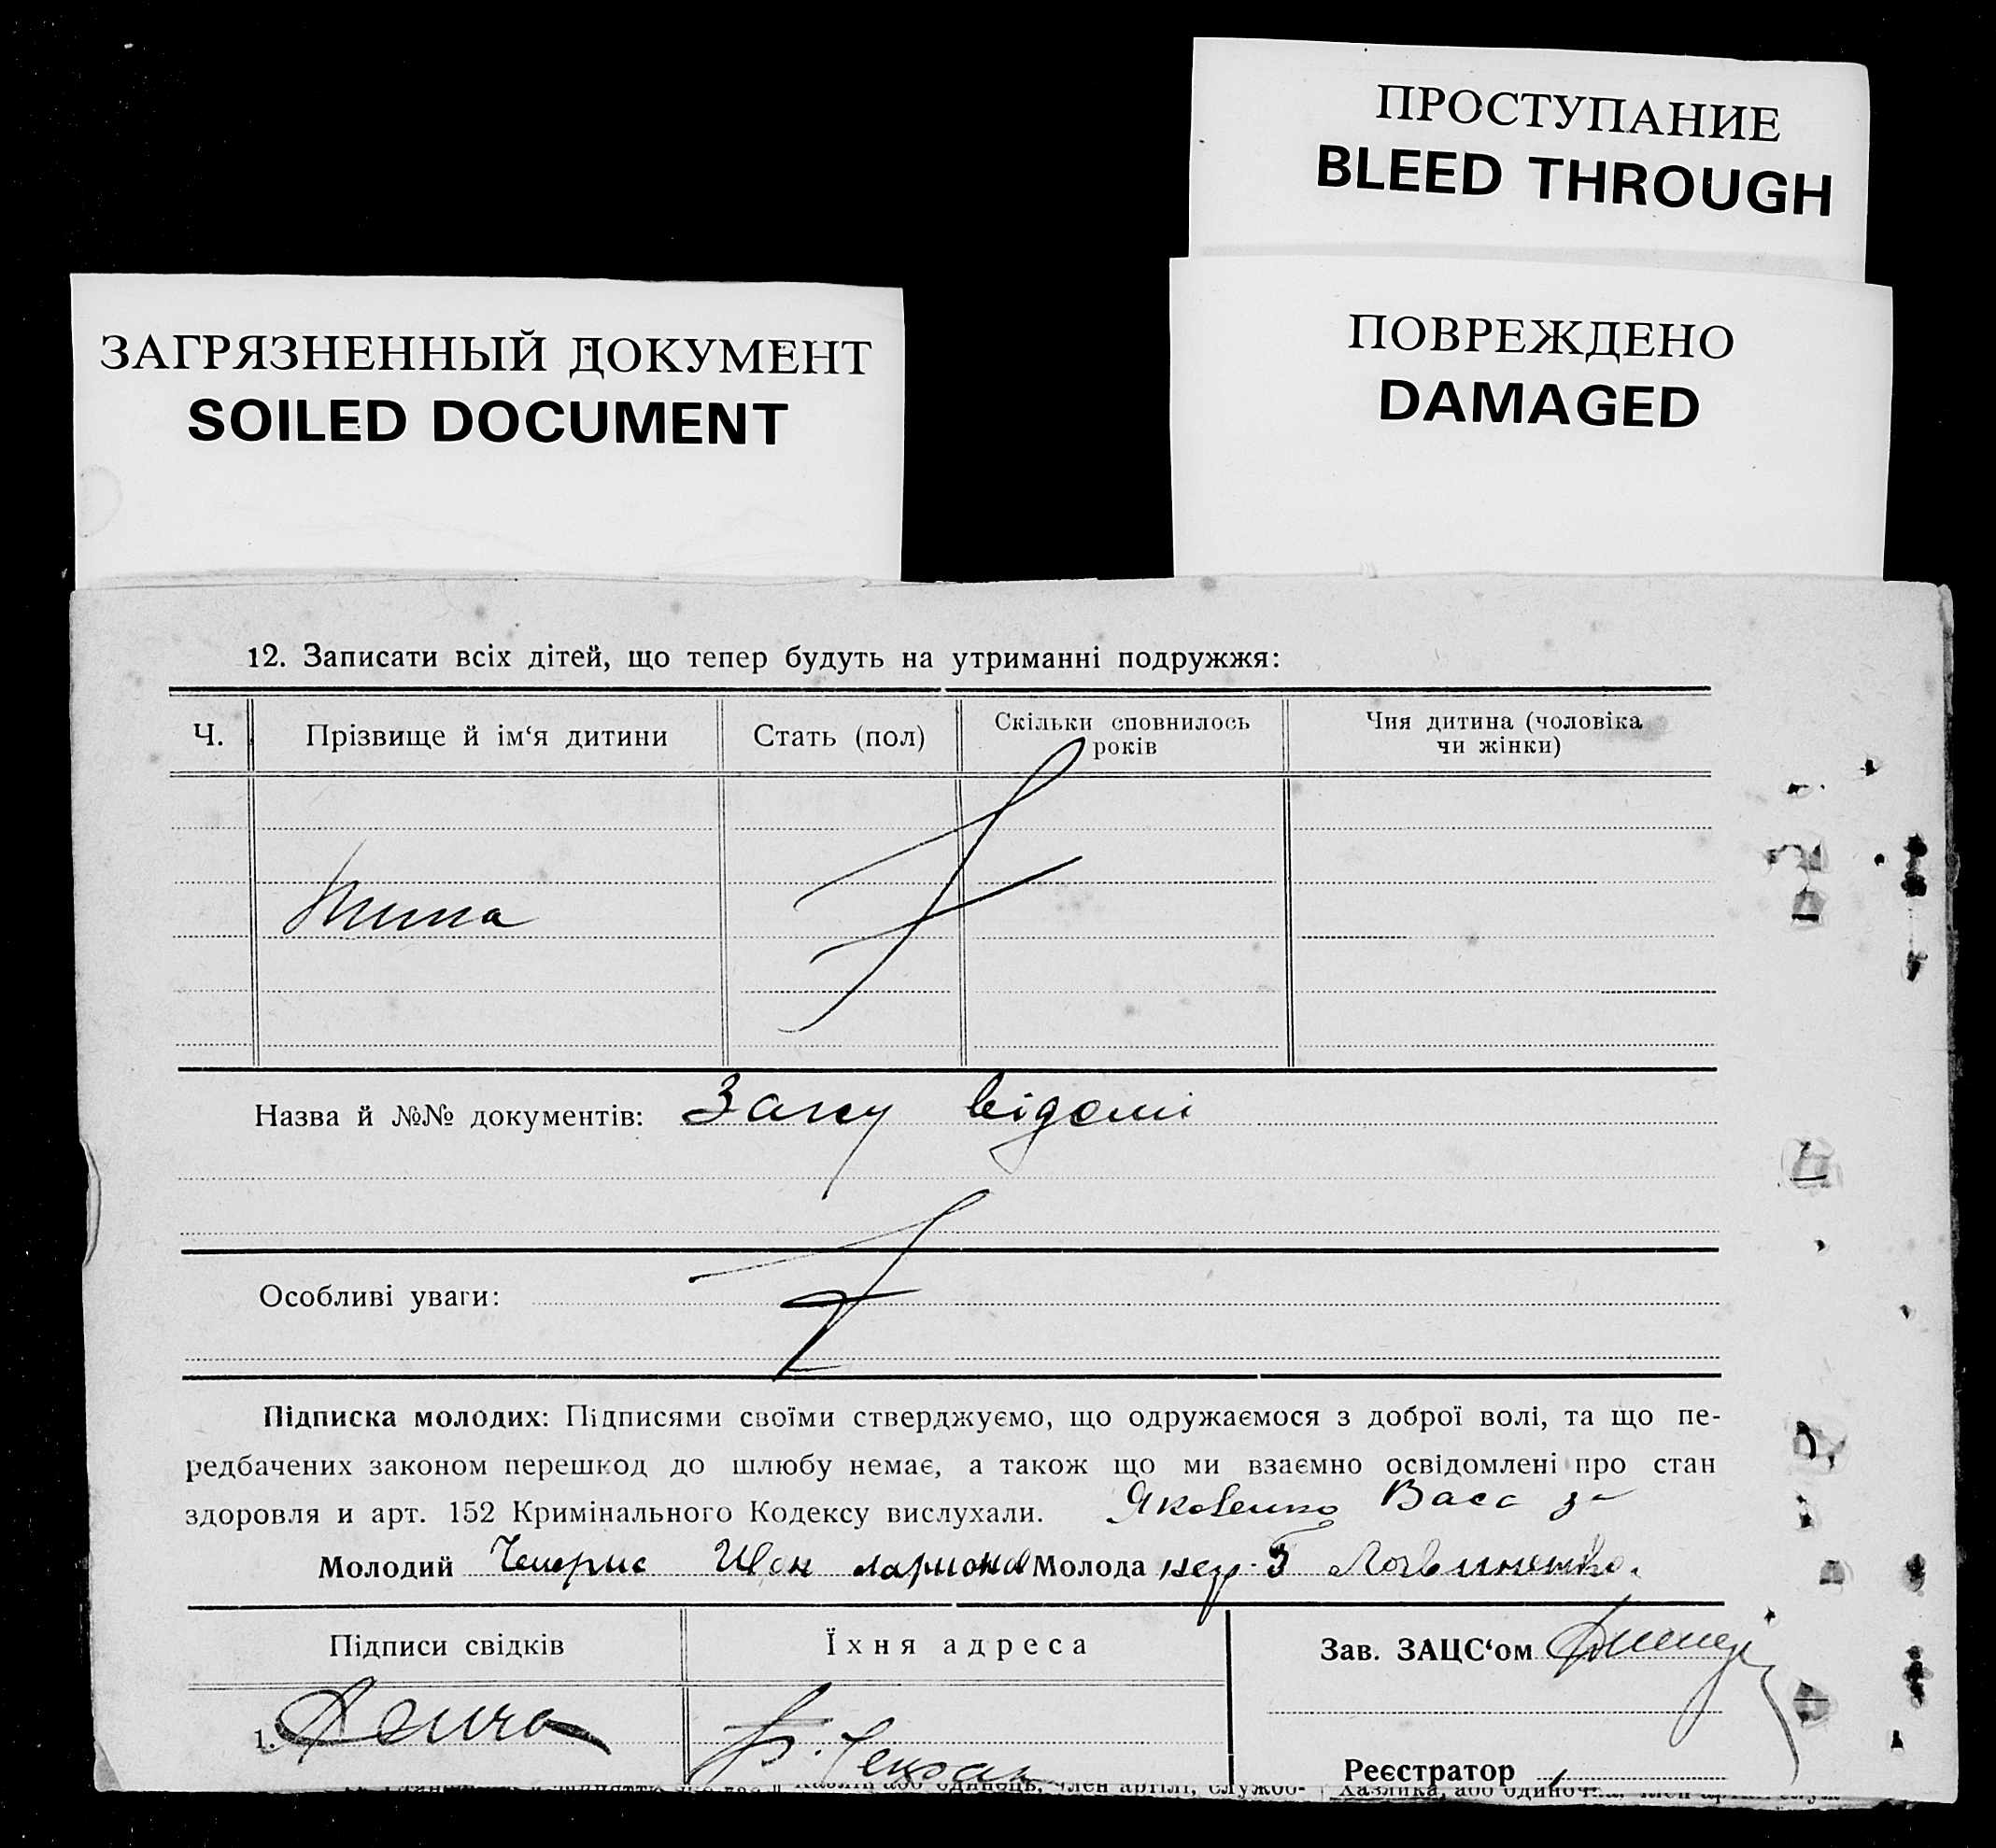 ПРОСТУПАНИЕ
BLEED THROUGH
ЗАГРЯЗНЕННЫЙ ДОКУМЕНТ
SOILED DOCUMENT
ПОВРЕЖДЕНО
DAMAGED
12. Записати всіх дітей, що тепер будуть на утриманні подружжя:
Ч.
Прізвище й ім‘я дитини
Стать (пол)
Скільки сповнилось
років
Чия дитина (чоловіка
чи жінки)
Назва й №№ документів: Загсу відомі
Особливі уваги:
Підписка молодих: Підписями своїми стверджуємо, що одружаємося з доброї волі, та що пе-
редбачених законом перешкод до шлюбу немає, а також що ми взаємно освідомлені про стан
здоровля и арт. 152 Кримінального Кодексу вислухали. Яковенко Васа за
Молодий Молода
Підписи свідків
Їхня адреса
Зав. ЗАЦС‘ом
1.
Реєстратор